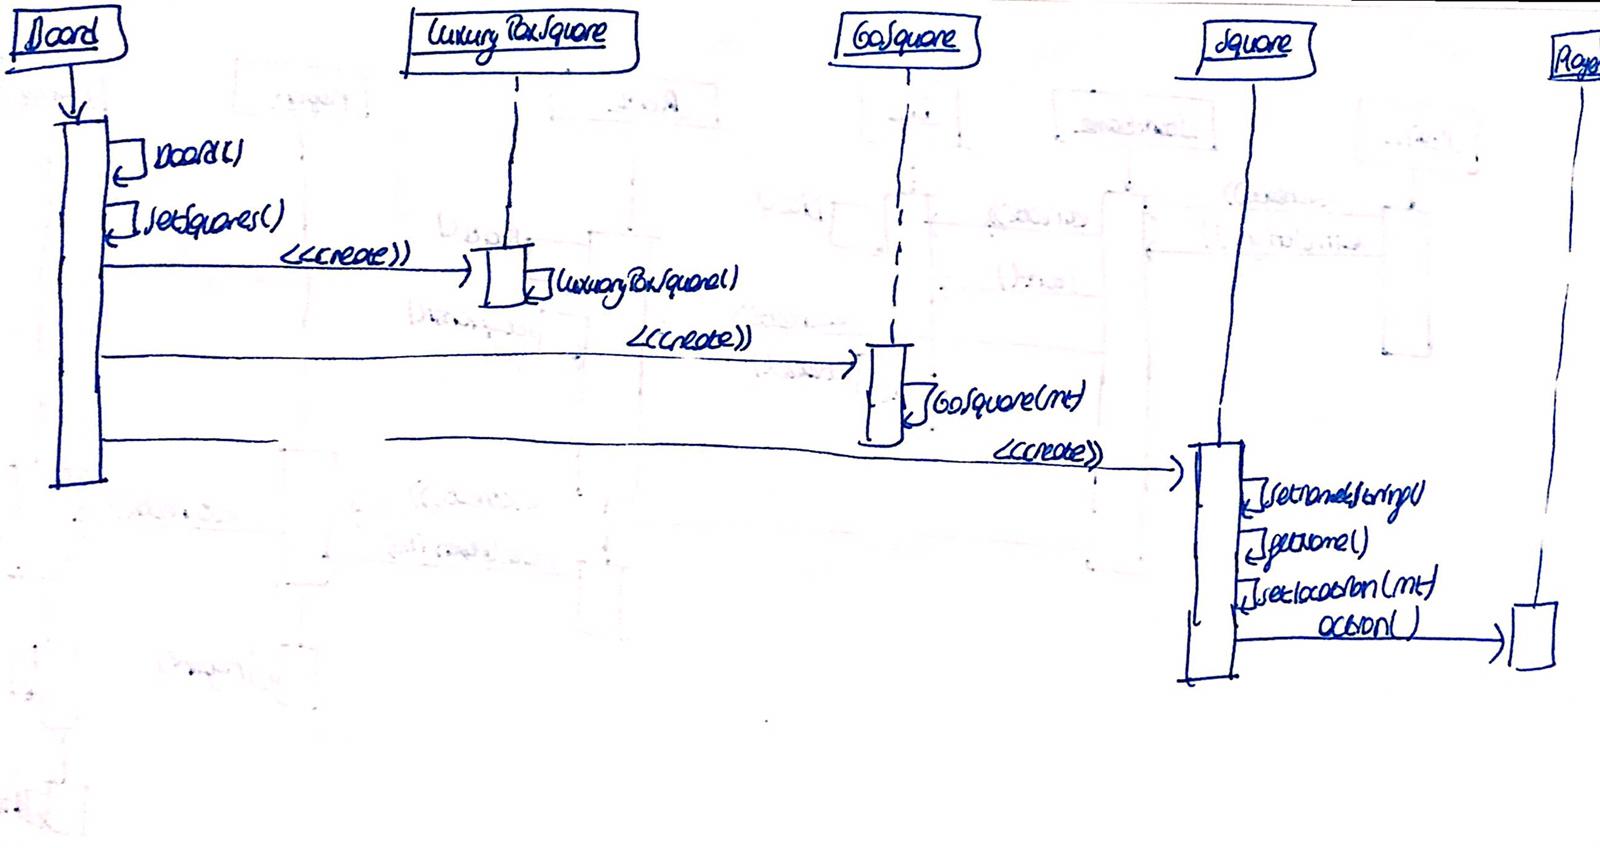 Board
LuxuryTaxSquare
GoSquare
Square
Playe
Board()
setSquares()
<<create>>
LuxuryTaxSquare()
<<create>>
GoSquare(int)
<<create>>
setname(String)
getName()
setlocation(int)
action()